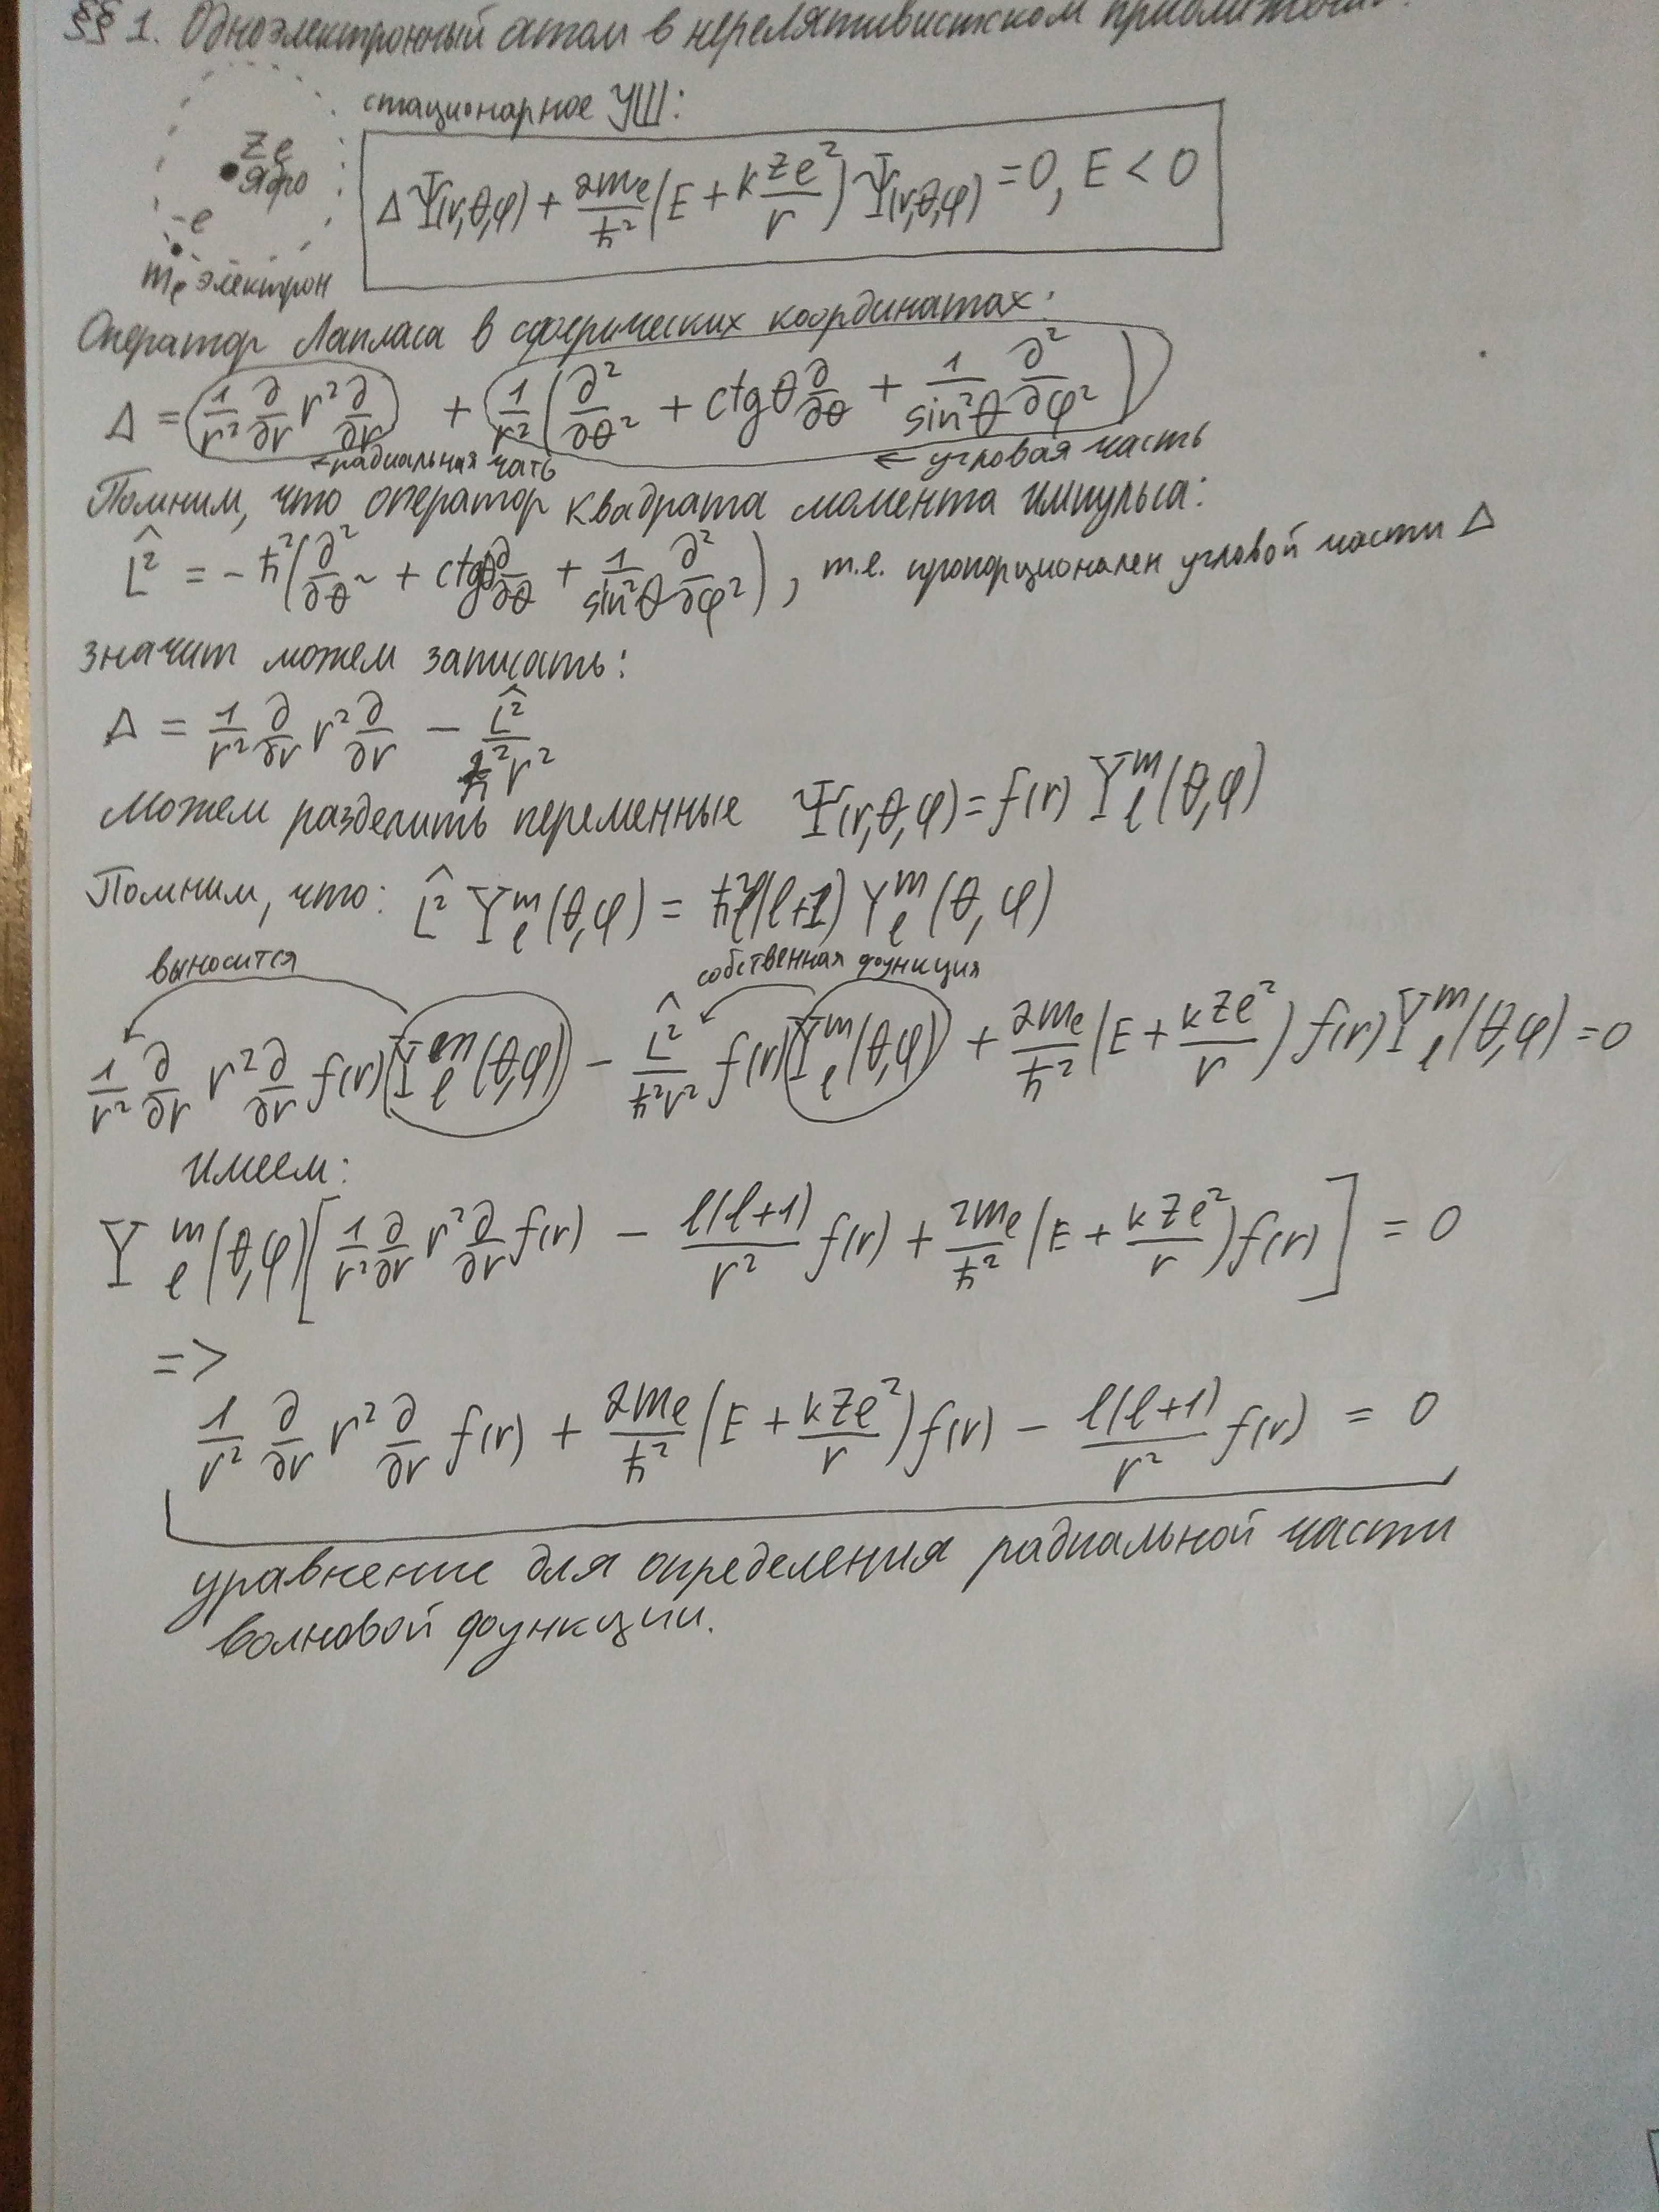 §§ 1. Одноэлектронный атом в нерелятивистском
стационарное УШ:
Ze
ядро
-e
mₑ электрон
ΔΨ(r,θ,φ) + 2mₑ/ħ² (E + k Ze²/r) Ψ(r,θ,φ) = 0, E < 0
Оператор Лапласа в сферических координатах:
Δ = 1/r² ∂/∂r r² ∂/∂r + 1/r² (∂²/∂θ² + ctgθ ∂/∂θ + 1/sin²θ ∂²/∂φ²)
← радиальная чать ← угловая часть
Помним, что оператор квадрата момента импульса:
L̂² = -ħ² (∂²/∂θ² + ctgθ ∂/∂θ + 1/sin²θ ∂²/∂φ²), т.е. пропорционален угловой части Δ
значит можем записать:
Δ = 1/r² ∂/∂r r² ∂/∂r - L̂²/ħ²r²
Можем разделить переменные Ψ(r,θ,φ) = f(r) Yₗᵐ(θ,φ)
Помним, что: L̂² Yₗᵐ(θ,φ) = ħ²l(l+1) Yₗᵐ(θ,φ)
выносится собственная функция
1/r² ∂/∂r r² ∂/∂r f(r) Yₗᵐ(θ,φ) - L̂²/ħ²r² f(r) Yₗᵐ(θ,φ) + 2mₑ/ħ² (E + kZe²/r) f(r) Yₗᵐ(θ,φ) = 0
имеем:
Yₗᵐ(θ,φ) [1/r² ∂/∂r r² ∂/∂r f(r) - l(l+1)/r² f(r) + 2mₑ/ħ² (E + kZe²/r) f(r)] = 0
=>
1/r² ∂/∂r r² ∂/∂r f(r) + 2mₑ/ħ² (E + kZe²/r) f(r) - l(l+1)/r² f(r) = 0
уравнение для определения радиальной части
волновой функции.